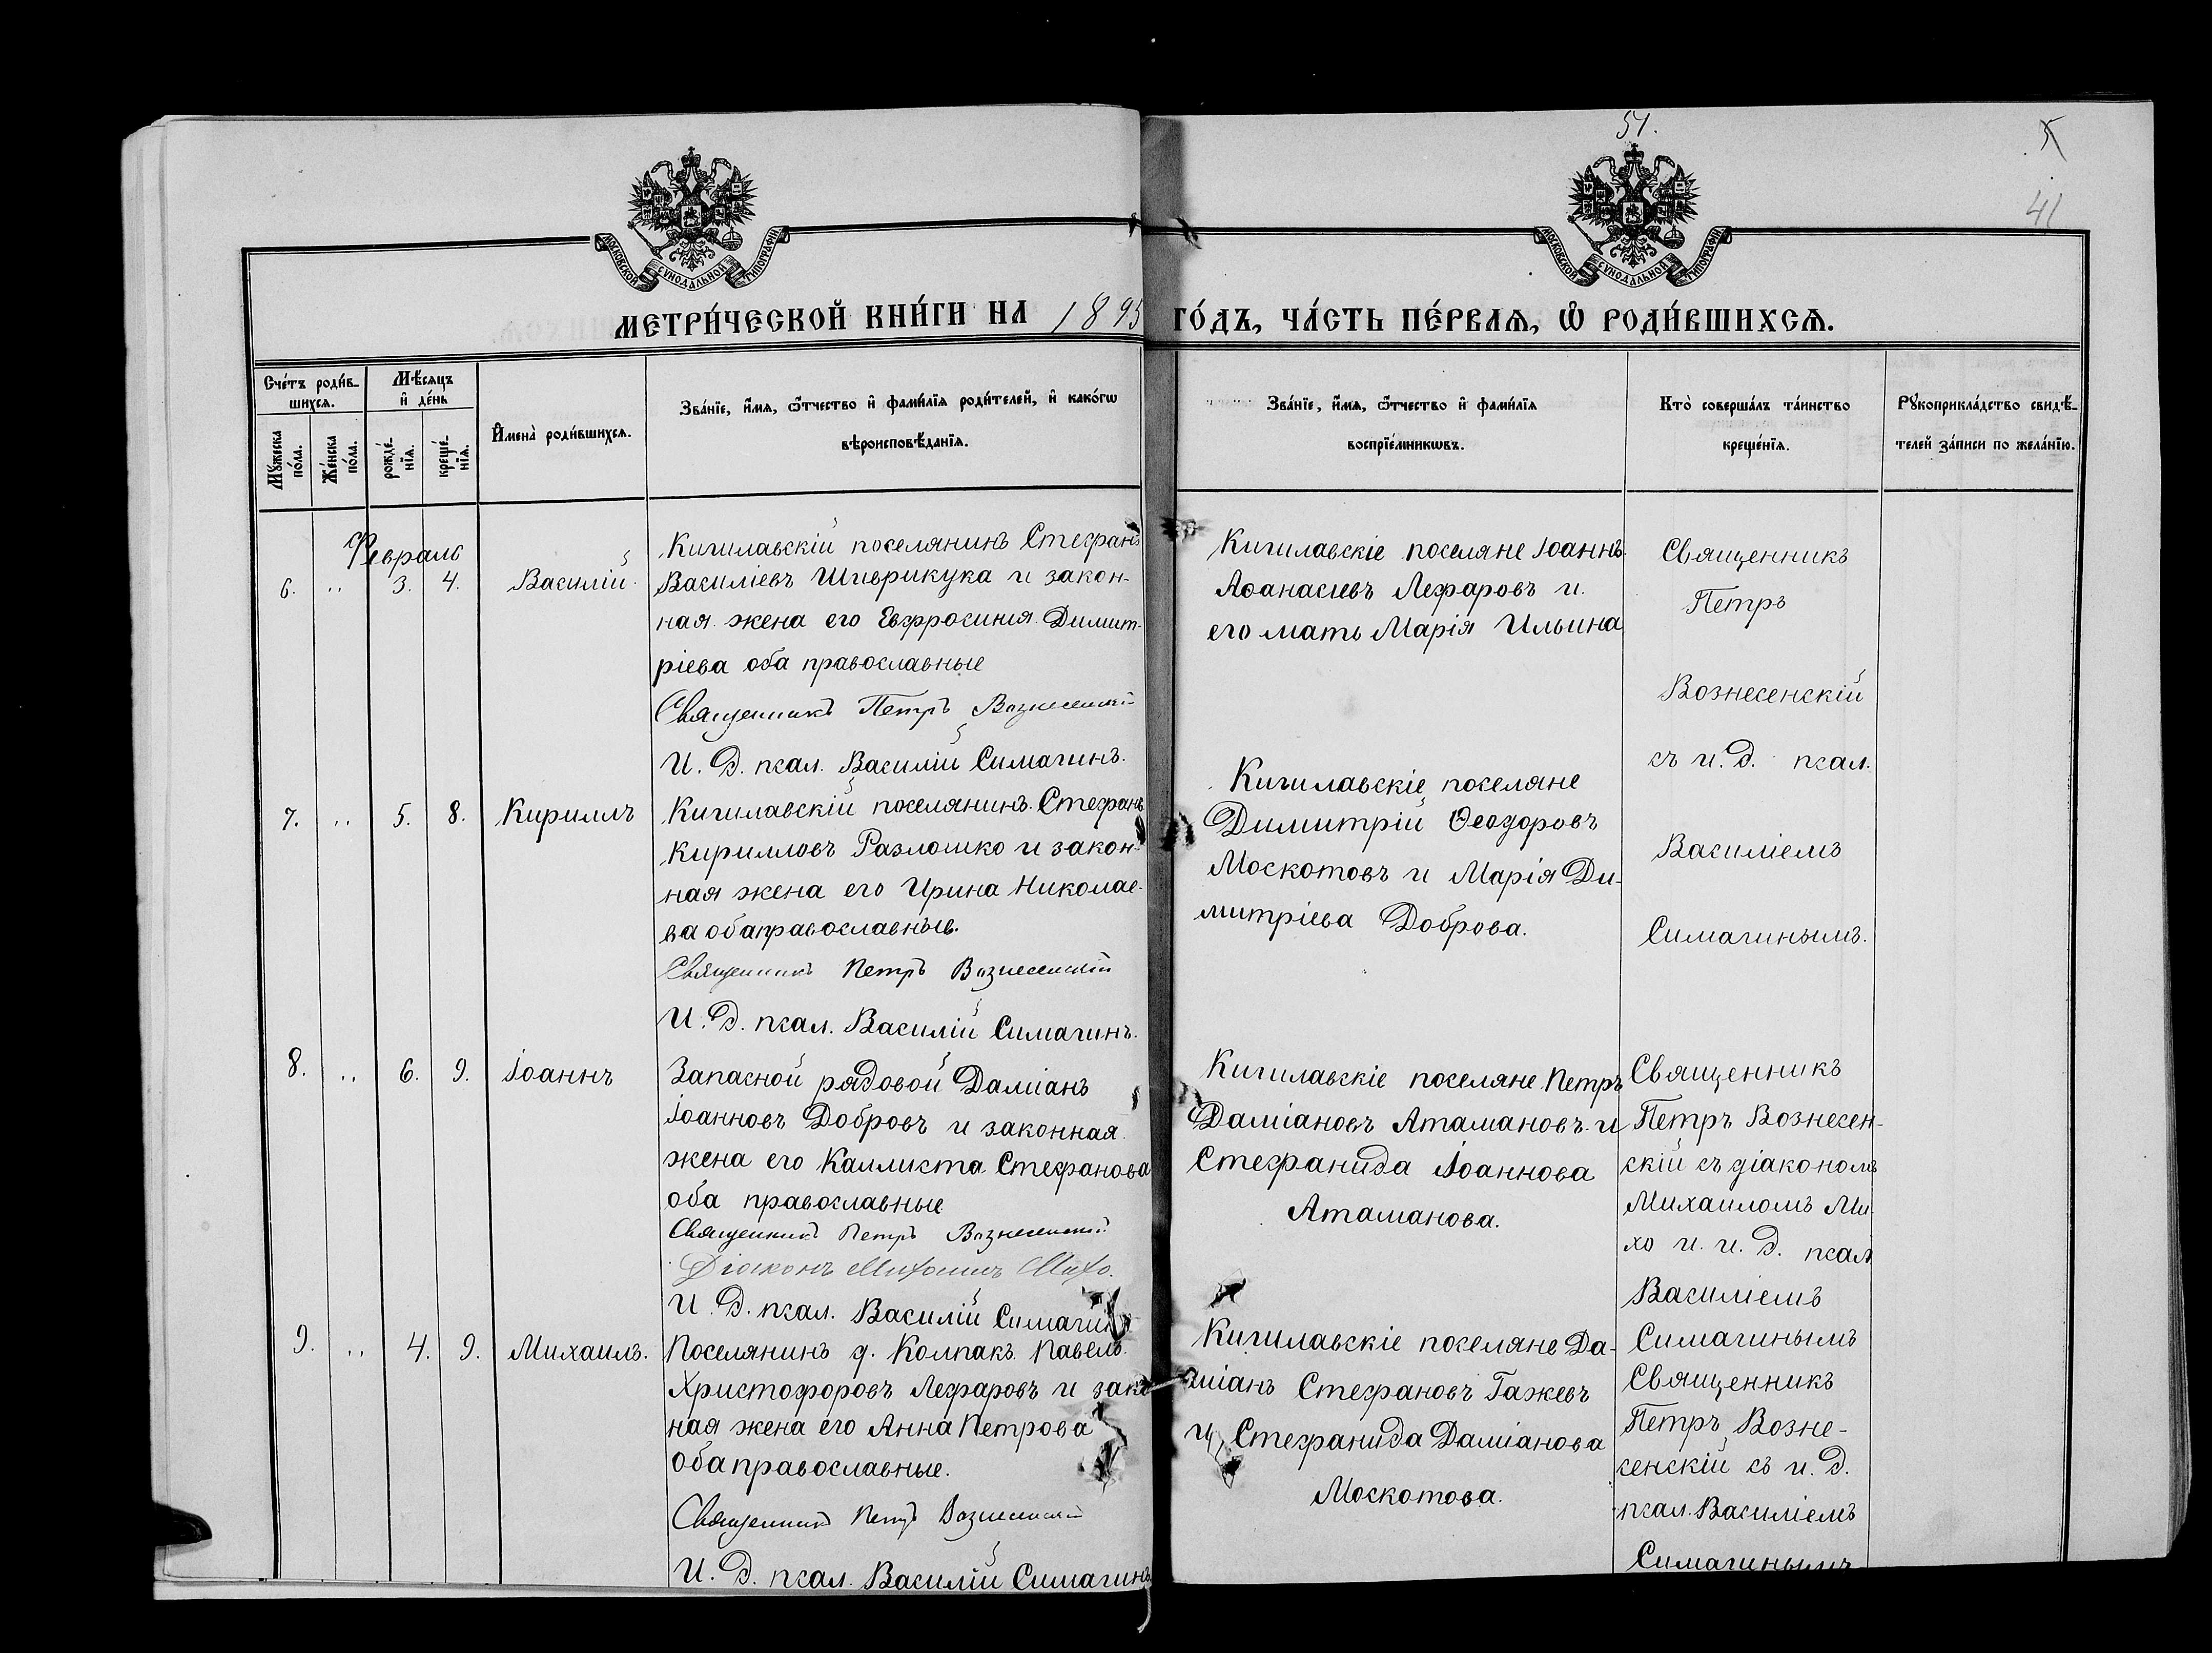 54.
5
41
МОСКОВСКОЙ СѴНОДАЛЬНОЙ ТИПОГРАФІИ
МОСКОВСКОЙ СѴНОДАЛЬНОЙ ТИПОГРАФІИ
МЕТРИ́ЧЕСКОЙ КНИ́ГИ НА 1895 ГО́ДЪ, ЧА́СТЬ ПЕ́РВАѦ, Ѡ҆ РОДИ́ВШИХСѦ.
Сче́тъ роди́в-
шихсѧ.
Мꙋ́жеска
по́ла.
Же́нска
по́ла.
Мѣ́сѧцъ
и҆ де́нь
рожде́-
нїѧ.
креще́-
нїѧ.
И҆мена̀ роди́вшихсѧ.
Зва́нїе, и҆́мѧ, ѻ҆́тчество и҆ фами́лїѧ роди́телей, и҆ како́гѡ
вѣроисповѣ́данїѧ.
Зва́нїе, и҆́мѧ, ѻ҆́тчество и҆ фами́лїѧ
воспрїе́мникѡвъ.
Кто̀ соверша́лъ та́инство
креще́нїѧ.
Рꙋкоприкла́дство свидѣ́-
телей за́писи по жела́нїю.
Февраль
6. „ 3. 4. Василій
Кигилавскій поселянинъ Стефанъ
Василіевъ Шпирикука и закон-
ная жена его Евфросинія Димит-
ріева оба православные
Священникъ Петръ Вознесенскій
И. Д. псал. Василій Симагинъ.
Кигилавскіе поселяне Іоаннъ
Аѳанасіевъ Лефаровъ и
его мать Марія Ильина
Священникъ
Петръ
Вознесенскій
съ и. Д. псал.
Василіемъ
Симагинымъ.
7. „ 5. 8. Кириллъ
Кигилавскій поселянинъ Стефанъ
Кирилловъ Разлошко и закон-
ная жена его Ирина Николае-
ва оба православные.
Священникъ Петръ Вознесенскій
И. Д. псал. Василій Симагинъ.
Кигилавскіе поселяне
Димитрій Ѳеодоровъ
Москотовъ и Марія Ди-
митріева Доброва.
8. „ 6. 9. Іоаннъ
Запасной рядовой Даміанъ
Іоанновъ Добровъ и законная
жена его Каллиста Стефанова
оба православные
Священникъ Петръ Вознесенскій
Діаконъ Михаилъ Михо.
И. Д. псал. Василій Симагинъ
Кигилавскіе поселяне Петръ
Даміановъ Атамановъ и
Стефанида Іоаннова
Атаманова.
Священникъ
Петръ Вознесен-
скій съ діакономъ
Михаиломъ Ми-
хо и и. Д. псал.
Василіемъ
Симагинымъ
9. „ 4. 9. Михаилъ.
Поселянинъ д. Колпакъ Павелъ
Христофоровъ Лефаровъ и зако
ная жена его Анна Петрова
оба православные.
Священникъ Петръ Вознесенскій
И. Д. псал. Василій Симагинъ
Кигилавскіе поселяне Да-
міанъ Стефановъ Гажевъ
и Стефанида Даміанова
Москотова.
Священникъ
Петръ Возне-
сенскій съ и. Д.
псал. Василіемъ
Симагинымъ